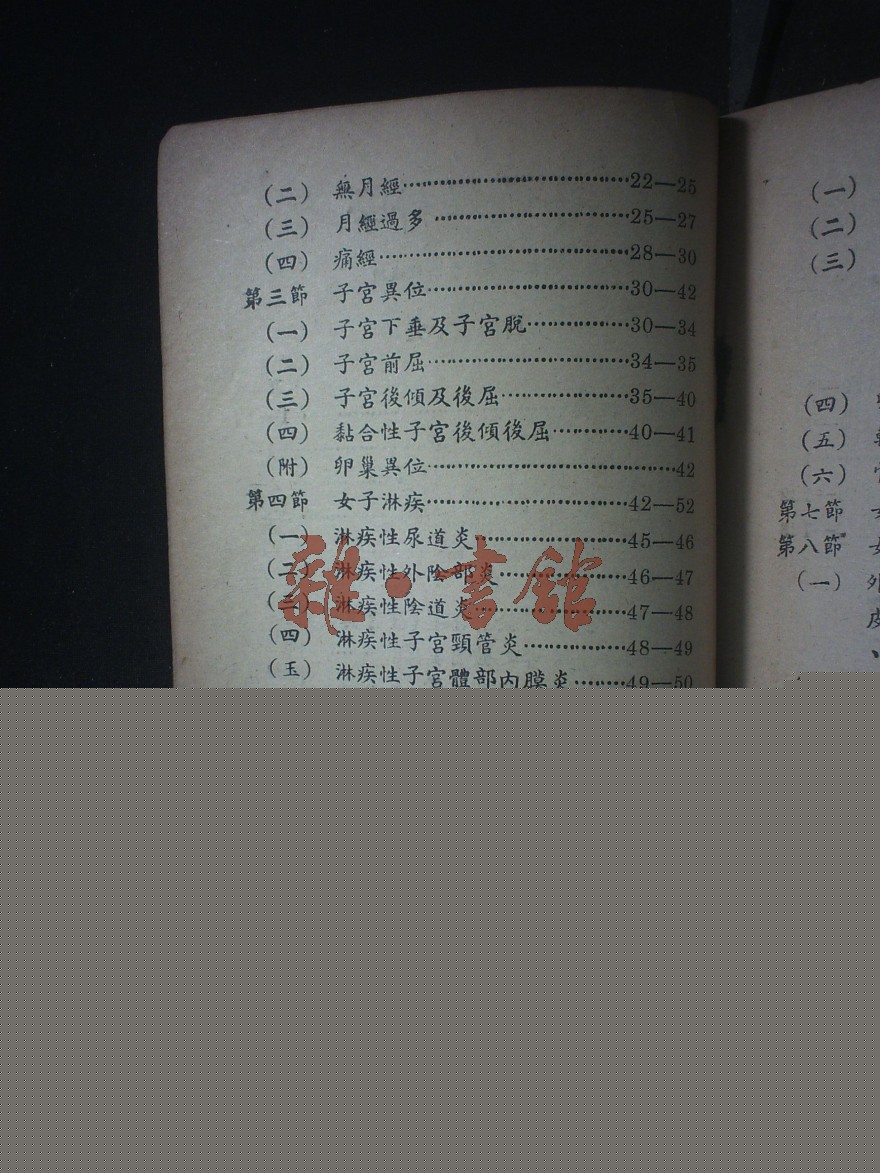 (二) 無月經……………………………22—25
(三) 月經過多…………………………25—27
(四) 痛經………………………………28—30
第三節 子宮異位…………………………30—42
(一) 子宮下垂及子宮脫……………30—34
(二) 子宮前屈…………………………34—35
(三) 子宮後傾及後屈………………35—40
(四) 黏合性子宮後傾後屈…………40—41
(附) 卵巢異位……………………………42
第四節 女子淋疾…………………………42—52
(一) 淋疾性尿道炎…………………45—46
(二) 淋疾性外陰部炎………………46—47
(三) 淋疾性陰道炎…………………47—48
(四) 淋疾性子宮頸管炎……………48—49
(五) 淋疾性子宮體部內膜炎………49—50
雜·書館
(一)
(二)
(三)
(四)
(五)
(六)
第七節
第八節
(一) 外